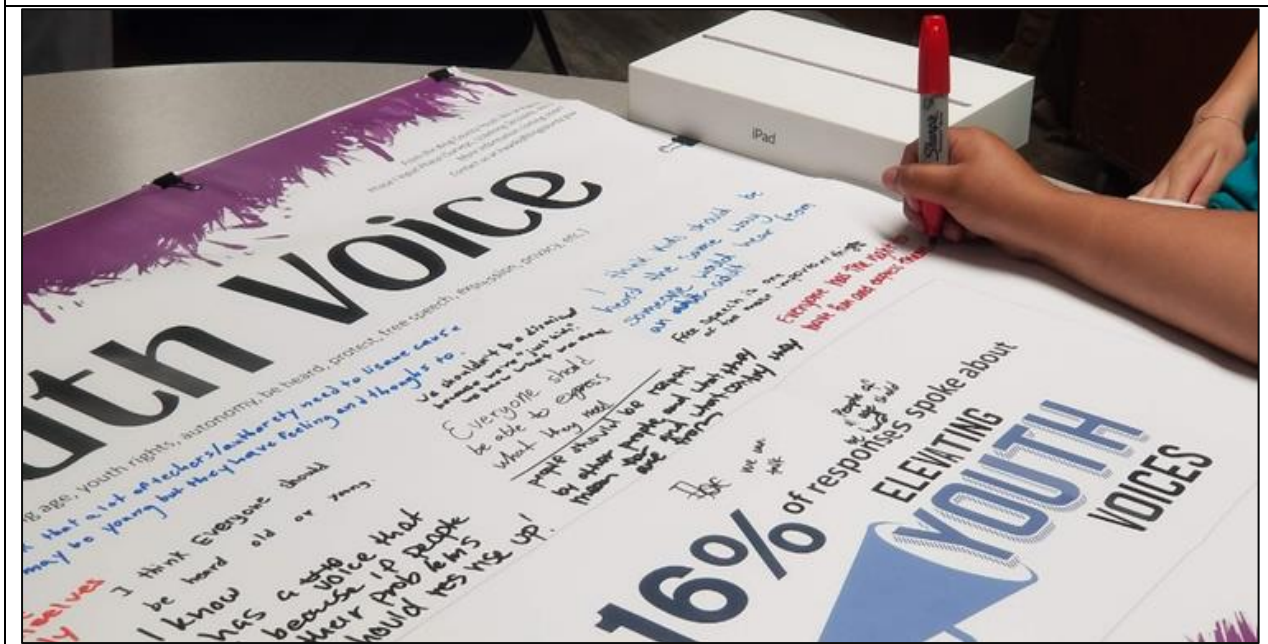 From the King County
Phase 1 Input
More information coming soon!
Contact us at
uth Voice
g age, youth rights, autonomy, be heard, protest, free speech, expression, privacy, etc.)
iPad
Sharpie
that a lot of techers/authorety need to lisove cause
may be young but they have feeling and thoughts to.
I think Everyone should
be heard old or young.
I know
has a voice that
because if people
their problems
hould res rise up!
we shouldn't be dismissed
because we're "just kids".
we know what we need
Everyone should
be able to express
what they need
people should be respect
by other people and what they
mean and what contry they
are from
I think kids should be
heard the same way
someone would hear from
an adult
Free speech is one
of the most important things
Everyone has the right to
have fun and expect
People of
we can
talk
16%
of responses spoke about
ELEVATING
YOUTH
VOICES